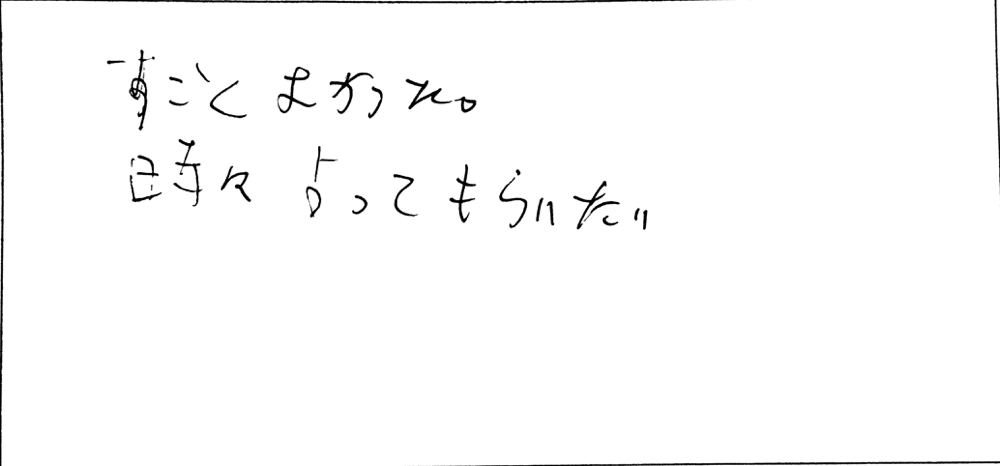 すごくよかった。
時々よってもらいたい